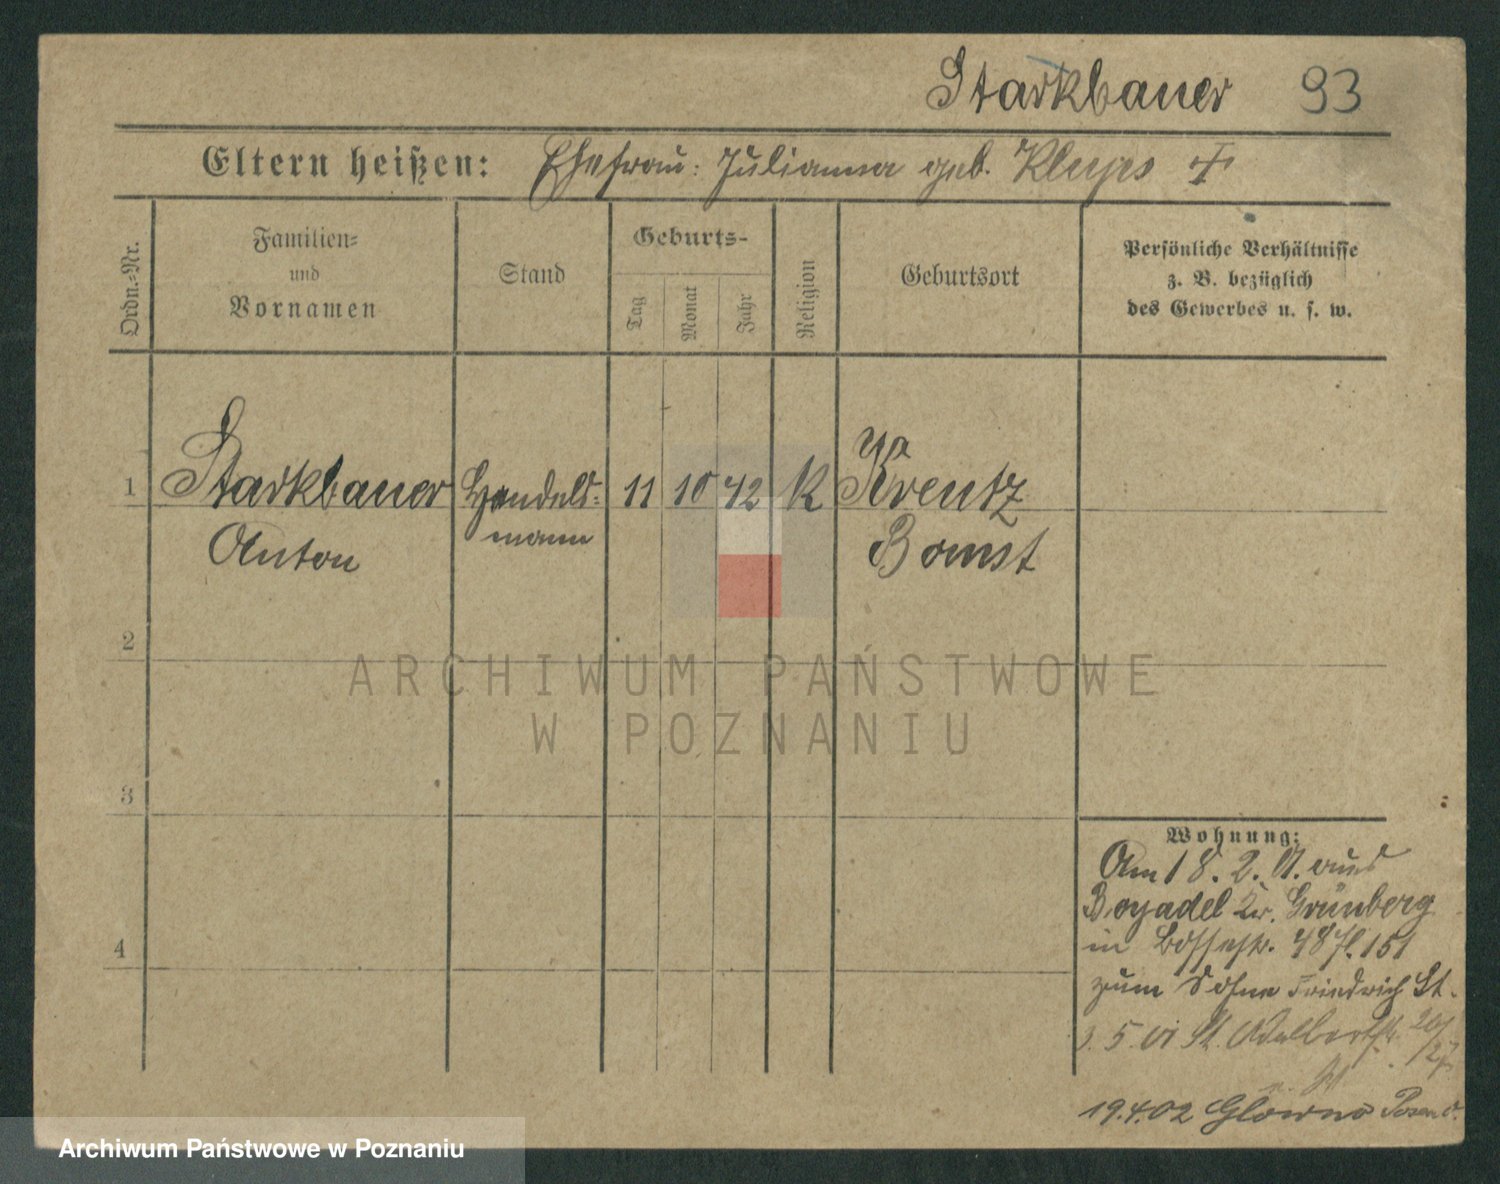 Starkbauer 93
Eltern heißen: Ehefrau: Julianna geb. Kleyps †
Ordn.-Nr.
Familien-
und
Vornamen
Stand
Geburts-
Tag
Monat
Jahr
Religion
Geburtsort
Persönliche Verhältnisse
z. B. bezüglich
des Gewerbes u. s. w.
1 Starkbauer Handels- 11 10 42 K Kreutz
Anton mann Bomst
2
3
4
Wohnung:
Am 18. 2. 01. aus
Boyadel Kr. Grünberg
in 151
zum Sohne Friedrich St.
5. VI St. Adalbertstr.
19.4.02 Glowno Posen O.
ARCHIWUM PAŃSTWOWE
W POZNANIU
Archiwum Państwowe w Poznaniu